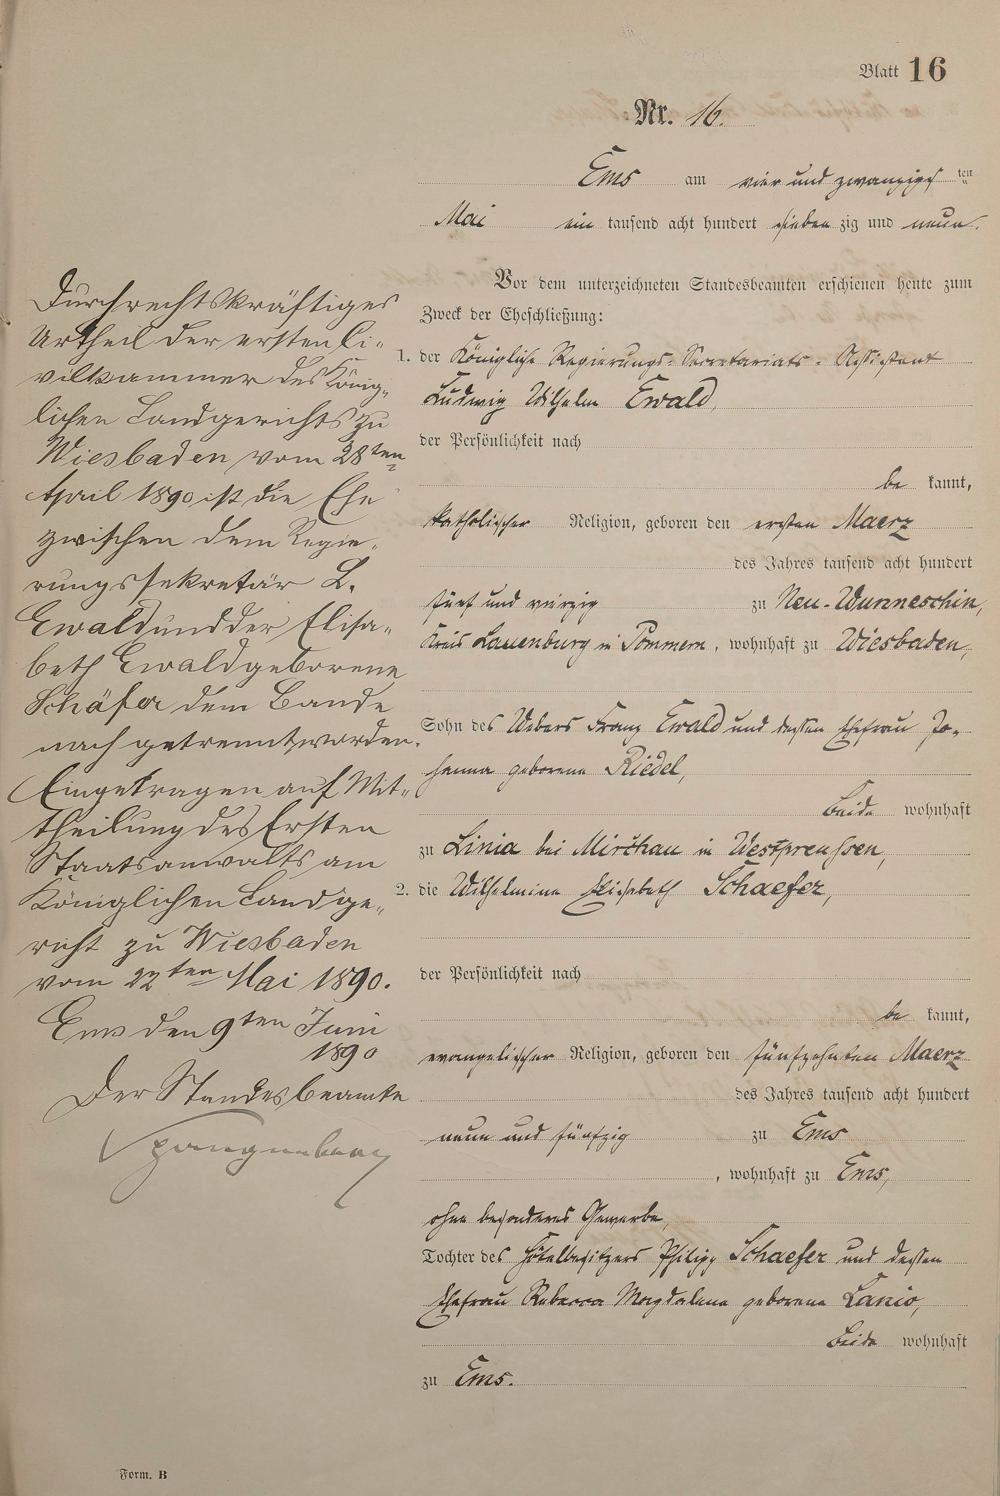 Blatt 16
Nr. 16.
Ems am vier und zwanzigsten
Mai ein tausend acht hundert sieben zig und neun.
Vor dem unterzeichneten Standesbeamten erschienen heute zum
Zweck der Eheschließung:
1. der Königliche Regierungs-Secretariats-Assistent
Ludwig Wilhelm Ewald,
der Persönlichkeit nach
be kannt,
katholischer Religion, geboren den ersten Maerz
des Jahres tausend acht hundert
fünf und vierzig zu Neu-Wunneschin,
Kreis Lauenburg in Pommern, wohnhaft zu Wiesbaden,
Sohn des Webers Franz Ewald und dessen Ehefrau Jo-
hanna geborene Riedel,
beide wohnhaft
zu Linia bei Mirchau in Westpreussen,
2. die Wilhelmine Elisabeth Schaefer,
der Persönlichkeit nach
be kannt,
evangelischer Religion, geboren den fünfzehnten Maerz
des Jahres tausend acht hundert
neun und fünfzig zu Ems
, wohnhaft zu Ems,
ohne besonderes Gewerbe,
Tochter des Hôtelbesitzers Philipp Schaefer und dessen
Ehefrau Rebecca Magdalena geborene Lanio,
beide wohnhaft
zu Ems.
Durch rechtskräftiges
Urtheil der ersten Ci-
vilkammer des König-
lichen Landgerichts zu
Wiesbaden vom 28ten
April 1890 ist die Ehe
zwischen dem Regie-
rungssekretär L.
Ewald und der Elisa-
beth Ewald geborene
Schäfer dem Bande
nach getrennt worden.
Eingetragen auf Mit-
theilung des Ersten
Staatsanwalts am
Königlichen Landge-
richt zu Wiesbaden
vom 22ten Mai 1890.
Ems den 9ten Juni
1890
Der Standesbeamte
Spangenberg
Form. B